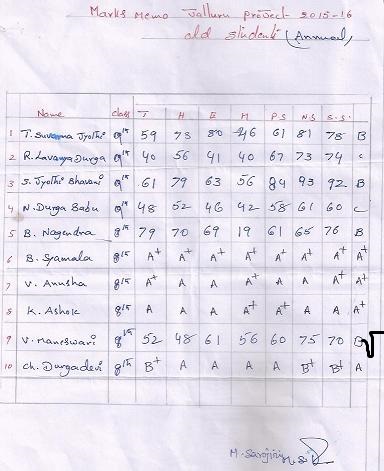 Marks Memo Valluru project 2015-16
old students (Annual)
Name class T H E M P.S N.S S.S.
1 T. Suvarna Jyothi 9th 59 73 80 46 61 81 78 B
2 R. Lavanya Durga 9th 40 56 41 40 67 73 74 C
3 S. Jyothi Bhavani 9th 61 79 63 56 84 93 92 B
4 N. Durga Babu 9th 48 52 46 42 58 61 60 C
5 B. Nagendra 8th 79 70 69 19 61 65 76 B
6 B. Syamala 8th A+ A A A+ A+ A+ A+ A+
7 V. Anusha 8th A+ A A A A A+ A+ A+
8 K. Ashok 8th A A A A+ A+ A A A+
9 V. Maneswari 9th 52 48 61 56 60 75 70
10 Ch. Durgadevi 8th B+ A A A A B+ B+ A
M. Sarojini